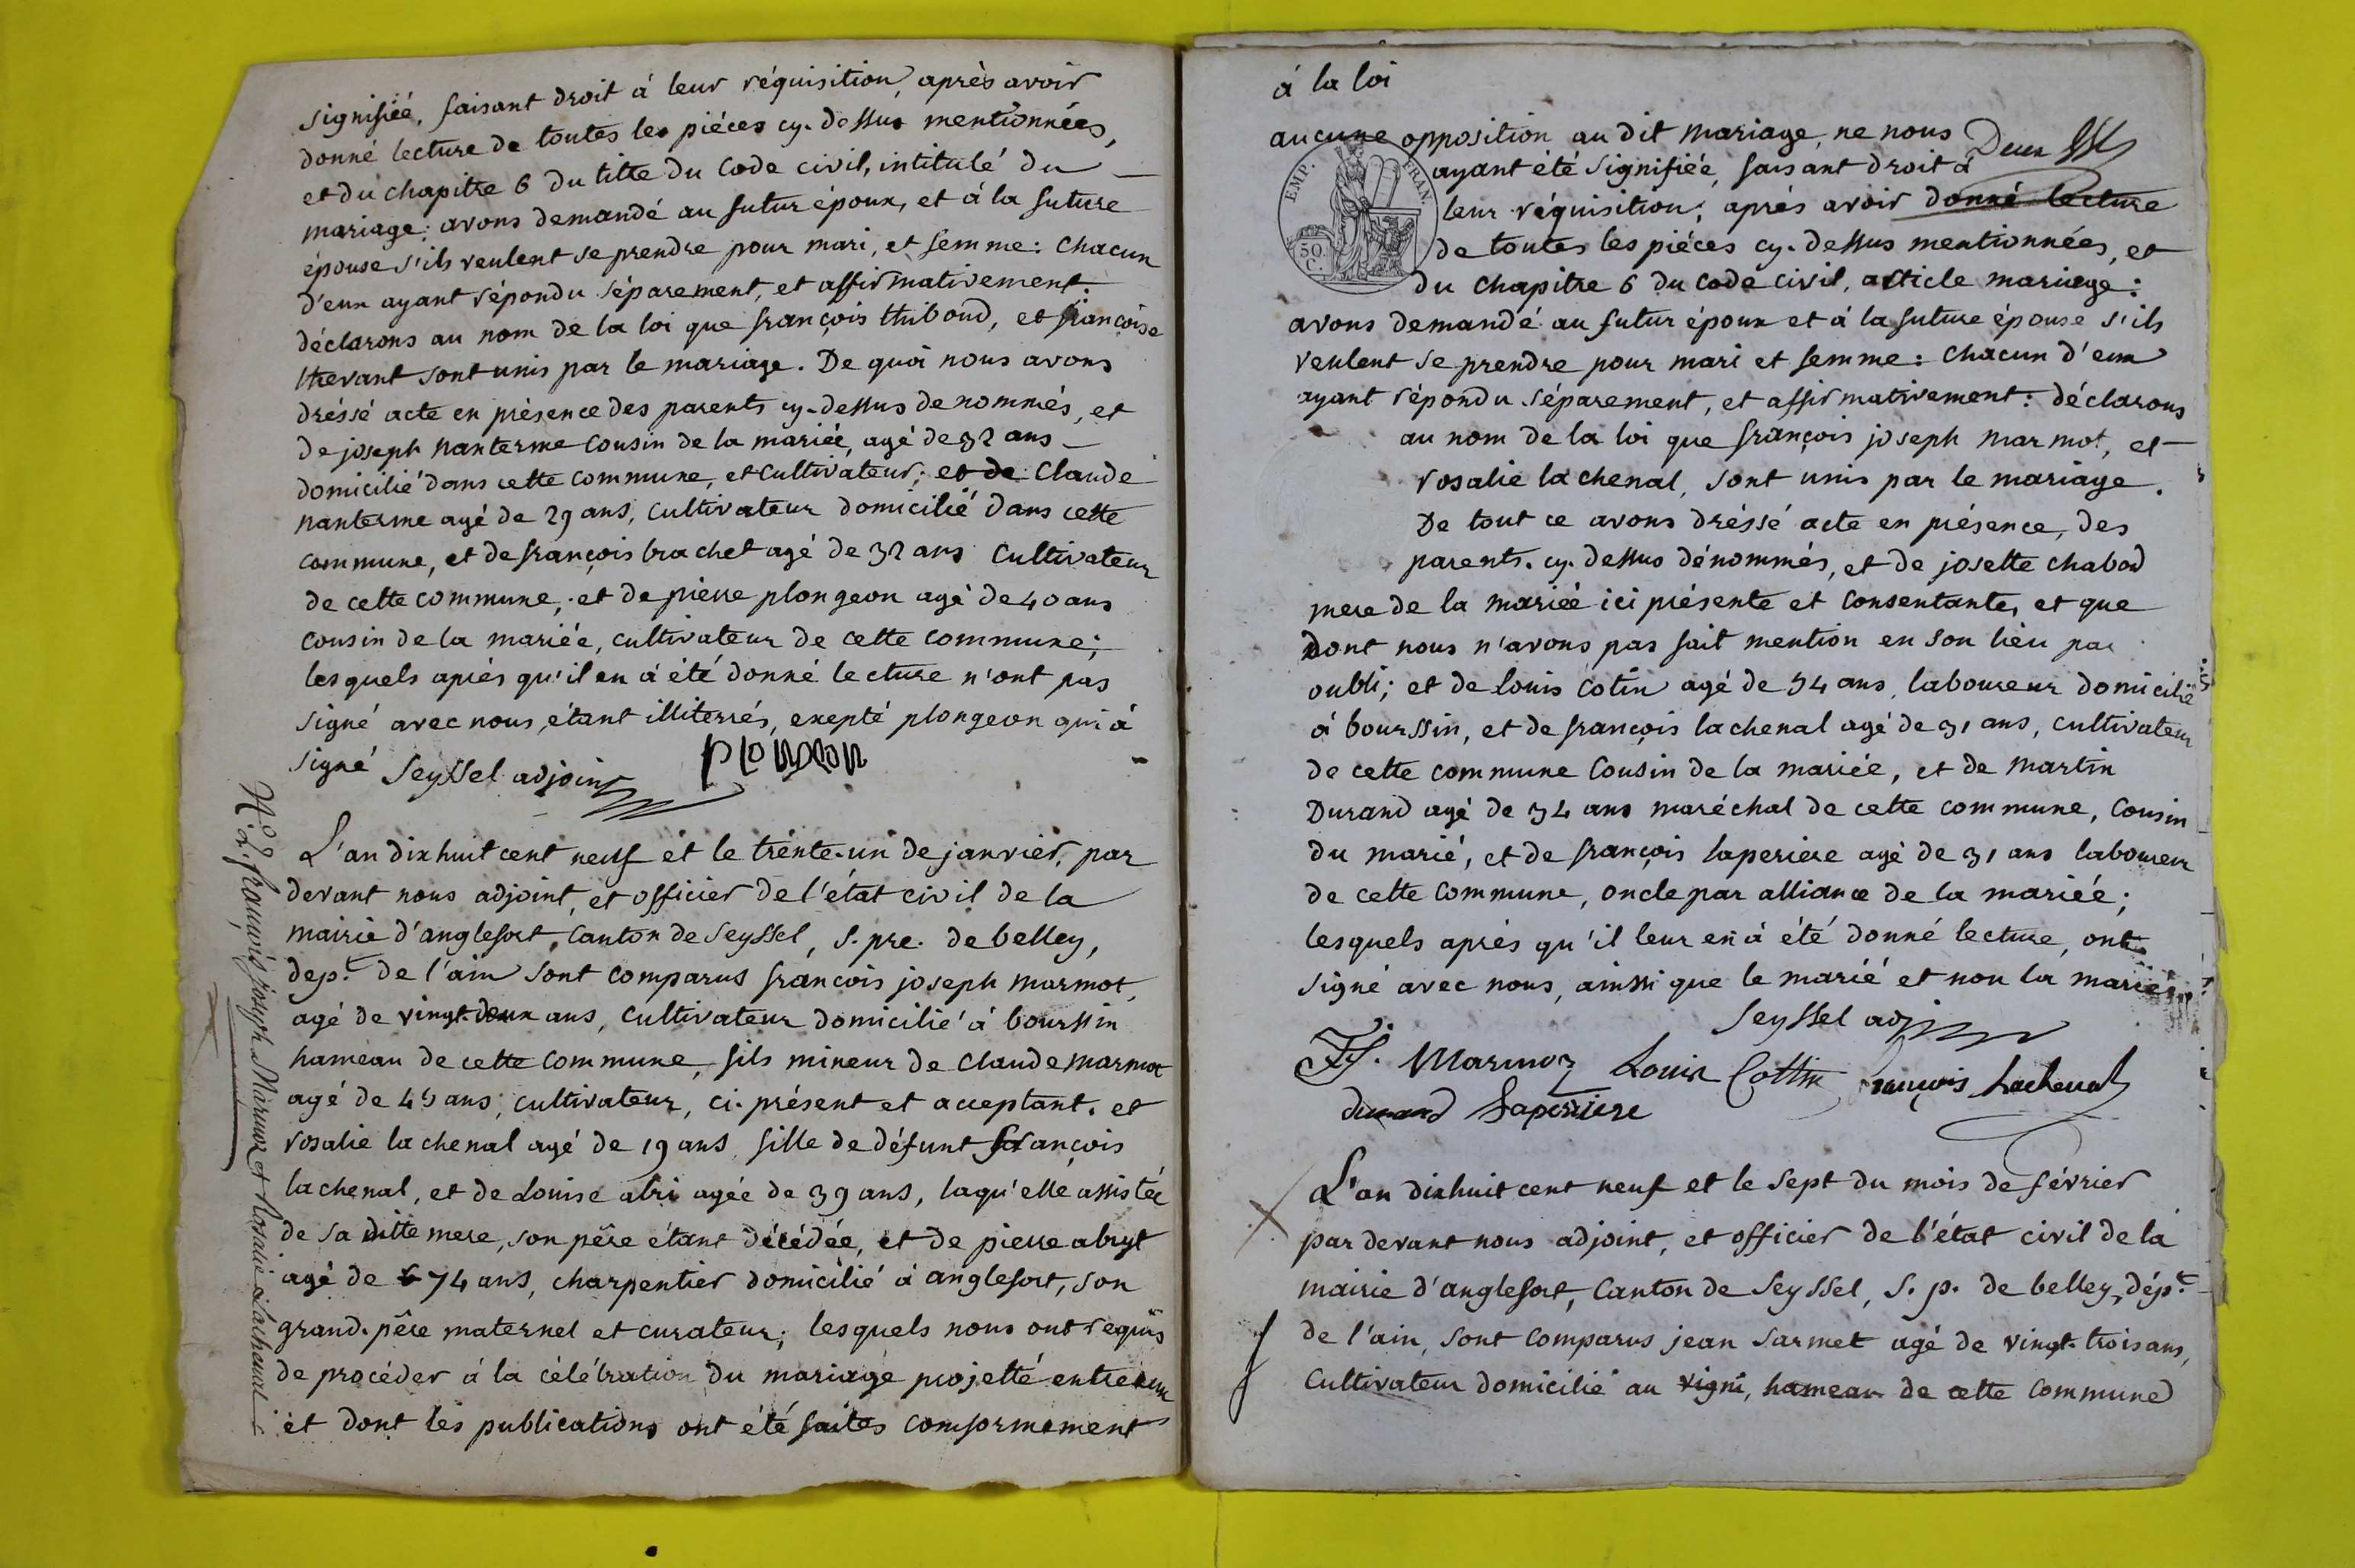 signifiée, faisant droit à leur réquisition, après avoir
donné lecture de toutes les piéces cy-dessus mentionnées,
et du chapitre 6 du titre du Code civil, intitulé du
mariage; avons demandé au futur époux, et à la future
épouse s'ils veulent se prendre pour mari, et femme: chacun
d'eux ayant répondu séparement, et affirmativement.
déclarons au nom de la loi que françois thiboud, et françoise
threvant sont unis par le mariage. De quoi nous avons
dréssé acte en présence des parents cy-dessus denommés, et
de joseph nanterme cousin de la mariée, agé de 32 ans
domicilié dans cette commune, et cultivateur; et de Claude
nanterme agé de 29 ans, cultivateur domicilié dans cette
commune, et de françois brachet agé de 32 ans cultivateur
de cette commune, et de pierre plongeon agé de 40 ans
cousin de la mariée, cultivateur de cette commune;
lesquels après qu'il en à été donné lecture n'ont pas
signé avec nous, étant illiterrés, exepté plongeon qui à
signé Seyssel adjoint
L'an dixhuit cent neuf et le trente-un de janvier, par
devant nous adjoint, et officier de l'état civil de la
mairie d'anglefort, Canton de Seyssel, s. pre. de belley,
dep.t de l'ain sont comparus françois joseph marmot,
agé de vingt-deux ans, cultivateur domicilié à bourssin
hameau de cette commune, fils mineur de Claude marmot
agé de 45 ans, cultivateur, ci-présent et acceptant. et
rosalie lachenal agé de 19 ans fille de défunt françois
lachenal, et de Louise abri agée de 39 ans, laqu'elle assistée
de sa ditte mere, son père étant décédée, et de pierre abryt
agé de 74 ans, charpentier domicilié à anglefort, son
grand-père maternel et curateur; lesquels nous ont réquis
de procéder à la célébration du mariage projetté entre eux
et dont les publications ont été faites conformement
N.o 2. françois joseph Marmoz et Rosalie Lachenal
à la loi
aucune opposition au dit mariage, ne nous
ayant été signifiée, faisant droit à
leur réquisition; après avoir donné lecture
de toutes les piéces cy-dessus mentionnées, et
du chapitre 6 du code civil, article mariage:
avons demandé au futur époux et à la future épouse s'ils
veulent se prendre pour mari et femme: chacun d'eux
ayant répondu séparement, et affirmativement: déclarons
au nom de la loi que françois joseph marmot, et
rosalie lachenal, sont unis par le mariage.
De tout ce avons dréssé acte en présence, des
parents. cy-dessus dénommés, et de josette chabod
mere de la mariée ici présente et consentante, et que
dont nous n'avons pas fait mention en son lieu par
oubli; et de Louis Cotin agé de 54 ans, laboureur domicilié
à bourssin, et de françois lachenal agé de 31 ans, cultivateur
de cette commune cousin de la mariée, et de martin
Durand agé de 34 ans maréchal de cette commune, cousin
du marié, et de françois laperiere agé de 31 ans laboureur
de cette commune, oncle par alliance de la mariée;
lesquels après qu'il leur en à été donné lecture, ont
signé avec nous, ainssi que le marié et non la mariée
Seyssel adj
Marmoz Louis Cottin françois Lachenal
durand Laperriere
L'an dixhuit cent neuf et le sept du mois de février
par devant nous adjoint, et officier de l'état civil de la
mairie d'anglefort, Canton de Seyssel, s. p. de belley, dép.t
de l'ain, sont comparus jean sarmet agé de vingt-trois ans,
cultivateur domicilié au vigni, hameau de cette commune
EMP. FRAN.
50
C.